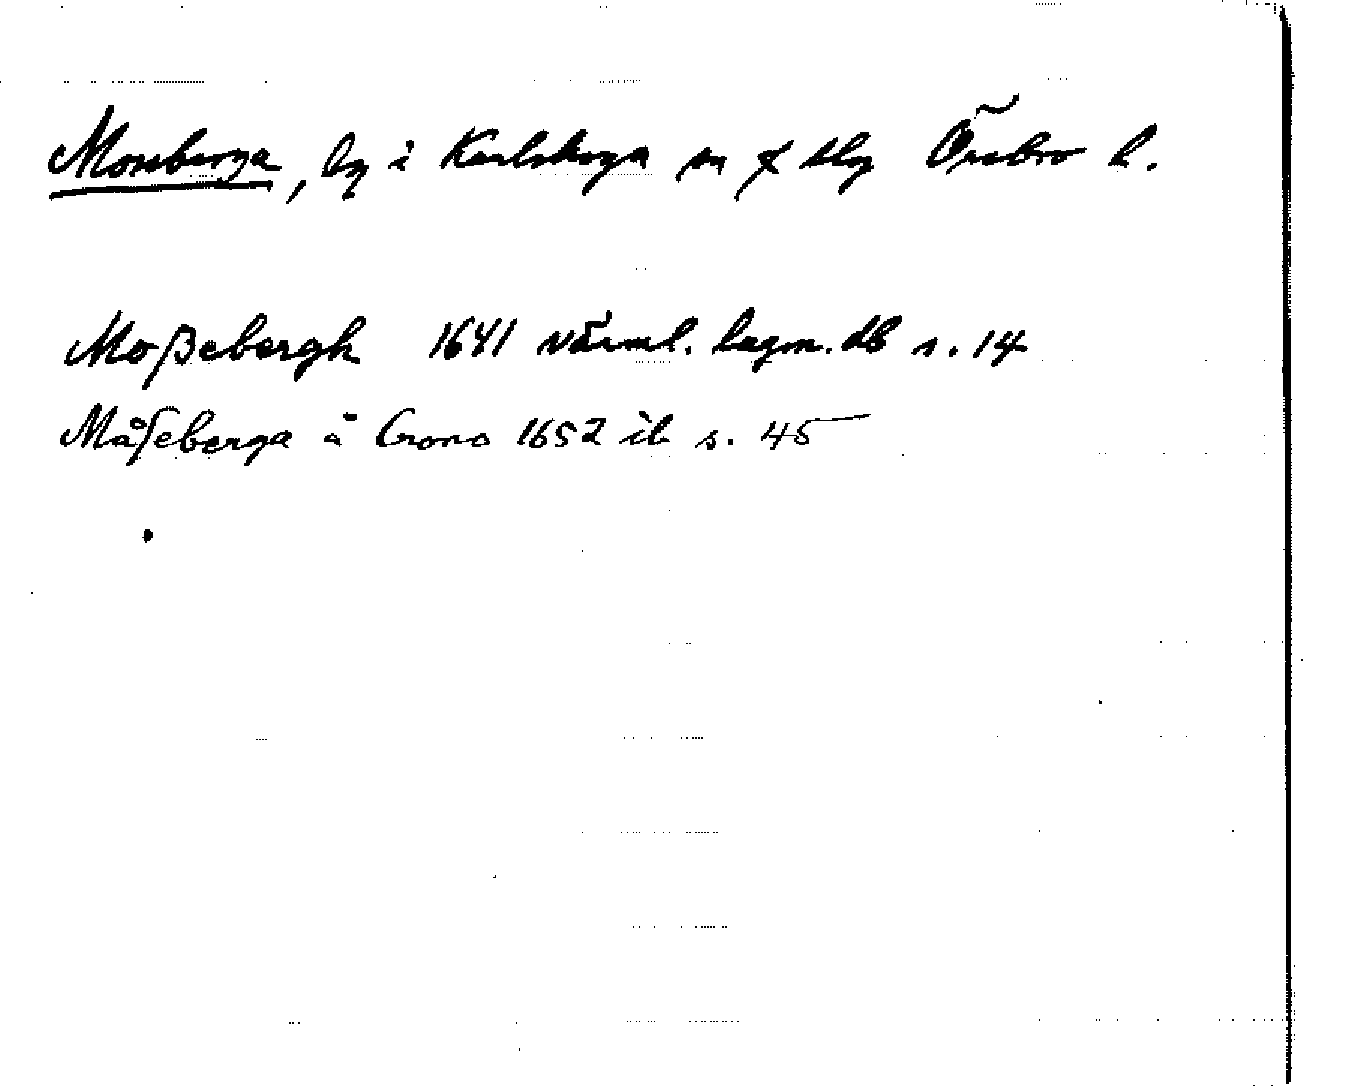 Mosseberga, by i Karlskoga sn f dlg Örebro l.
Moßebergh 1641 värml. lagm. db s. 14
Måſeberga å Crono 1652 ib s. 45